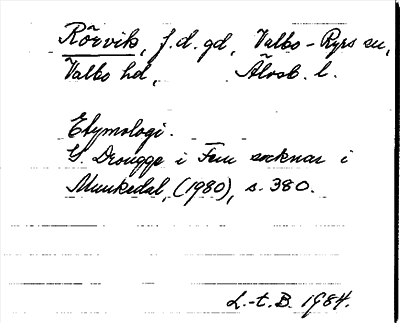 Rörvik, f.d. gd, Valbo-Ryrs sn,
Valbo hd, Älvsb. l.
Etymologi.
G. Drougge i Fem socknar i
Munkedal, (1980), s. 380.
L.-t. B. 1984.